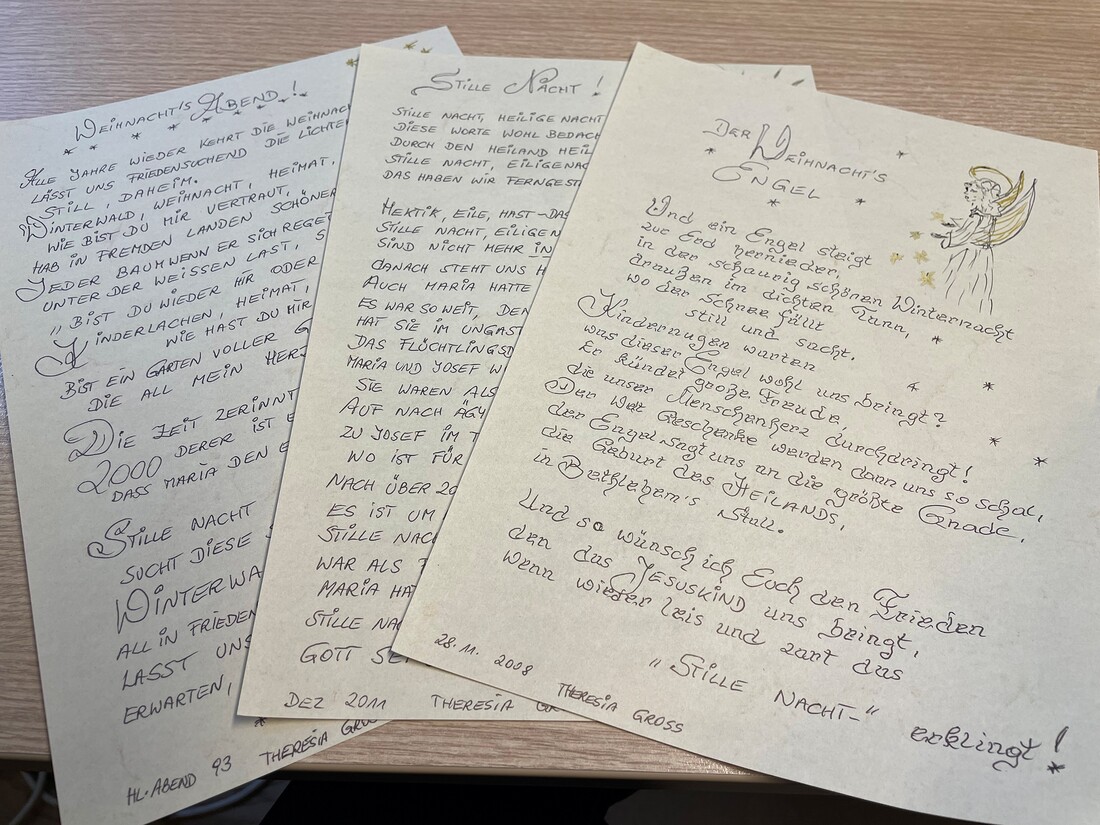 WEIHNACHT'S ABEND!
ALLE JAHRE WIEDER KEHRT DIE WEIHNAC
LÄSST UNS FRIEDENSUCHEND DIE LICHTE
STILL, DAHEIM.
WINTERWALD, WEIHNACHT, HEIMAT,
WIE BIST DU MIR VERTRAUT,
HAB IN FREMDEN LANDEN SCHÖNER
JEDER BAUM WENN ER SICH REGET
UNTER DER WEISSEN LAST, S
"BIST DU WIEDER HIR ODER
KINDERLACHEN, HEIMAT,
WIE HAST DU MIR
BIST EIN GARTEN VOLLER G
DIE ALL MEIN HERZ
DIE ZEIT ZERINNT
2000 DERER IST E
DASS MARIA DEN E
STILLE NACHT
SUCHT DIESE
WINTERWA
ALL IN FRIEDEN
LASST UNS
ERWARTEN,
HL. ABEND 93 THERESIA GRO
STILLE NACHT!
STILLE NACHT, HEILIGE NACHT
DIESE WORTE WOHL BEDACH
DURCH DEN HEILAND HEIL
STILLE NACHT, EILIGENAC
DAS HABEN WIR FERNGEST
HEKTIK, EILE, HAST-DAS
STILLE NACHT, EILIGEN
SIND NICHT MEHR IN
DANACH STEHT UNS H
AUCH MARIA HATTE
ES WAR SO WEIT, DEN
HAT SIE IM UNGAST
DAS FLÜCHTLINGSD
MARIA UND JOSEF W
SIE WAREN ALS
AUF NACH ÄGY
ZU JOSEF IM T
WO IST FÜR
NACH ÜBER 20
ES IST UM
STILLE NAC
WAR ALS
MARIA HA
STILLE NA
GOTT SE
DEZ 2011 THERESIA G
DER WEIHNACHT'S
ENGEL
Und ein Engel steigt
zur Erd hernieder,
in der schaurig schönen Winternacht
draußen im dichten Tann,
wo der Schnee fällt
still und sacht.
Kinderaugen warten
was dieser Engel wohl uns bringt?
Er kündet große Freude,
die unser Menschenherz durchdringt!
Der Welt Geschenke werden dann uns so schal,
der Engel singt uns an die größte Gnade,
die Geburt des HEILANDS,
in Bethlehem's Stall.
Und so wünsch ich Euch den Frieden
den das JESUSKIND uns bringt,
wenn wieder leis und zart das
"STILLE NACHT-" erklingt!
28.11. 2008 THERESIA GROSS